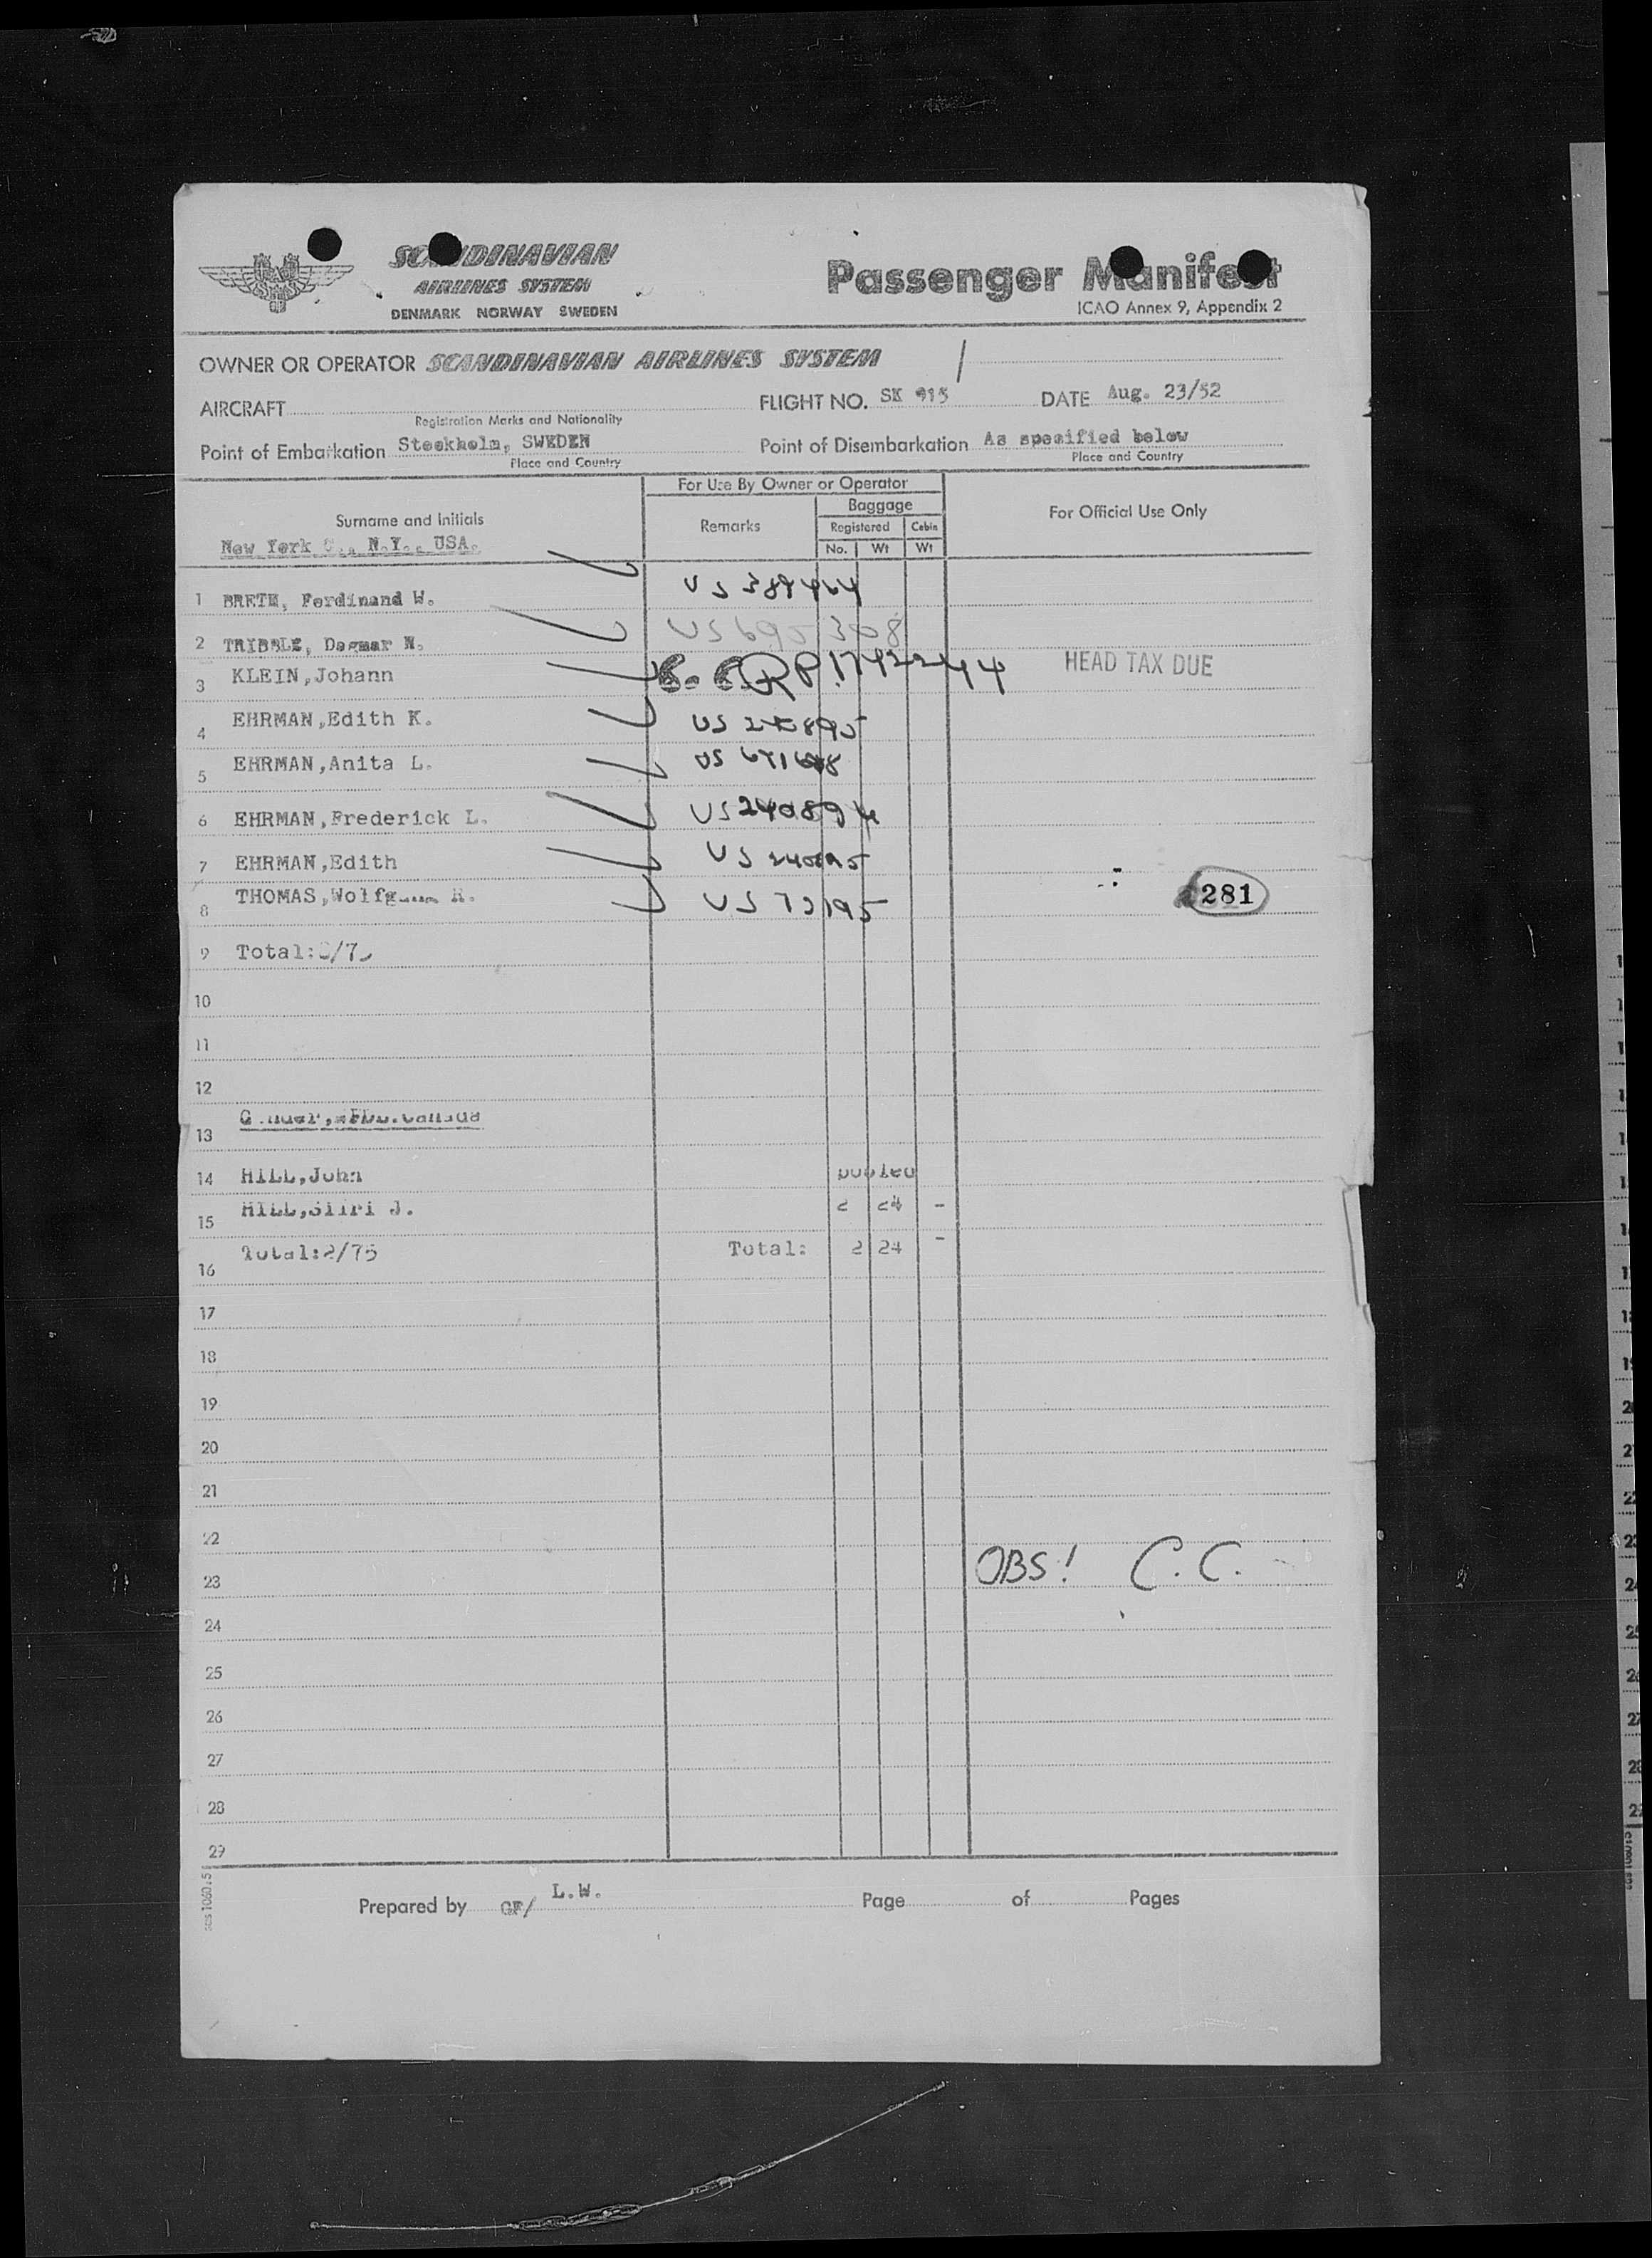 SCANDINAVIAN
AIRLINES SYSTEM
DENMARK NORWAY SWEDEN
Passenger Manifest
ICAO Annex 9, Appendix 2
OWNER OR OPERATOR SCANDINAVIAN AIRLINES SYSTEM
AIRCRAFT
Registration Marks and Nationality
FLIGHT NO. SK 915
DATE Aug. 23/52
Point of Embarkation Stockholm, SWEDEN
Place and Country
Point of Disembarkation As specified below
Place and Country
Surname and Initials
For Use By Owner or Operator
Remarks
Baggage
Registered Cabin
No. Wt Wt
For Official Use Only
New York N.Y., USA.
1 Ferdinand W. US
2 TRIBBLE, Dagmar N. US 695308
3 KLEIN,Johann HEAD TAX DUE
4 EHRMAN,Edith K. US
5 EHRMAN,Anita L. US
6 EHRMAN,Frederick L. US 240894
7 EHRMAN,Edith US
8 THOMAS, US 281
9 Total:
10
11
12
13
14 HILL,John
15 HILL, J. 2 24 -
16 Total:2/75 Total: 2 24 -
17
18
19
20
21
22
23 OBS! C.C.
24
25
26
27
28
29
Prepared by GF/ L.W. Page of Pages